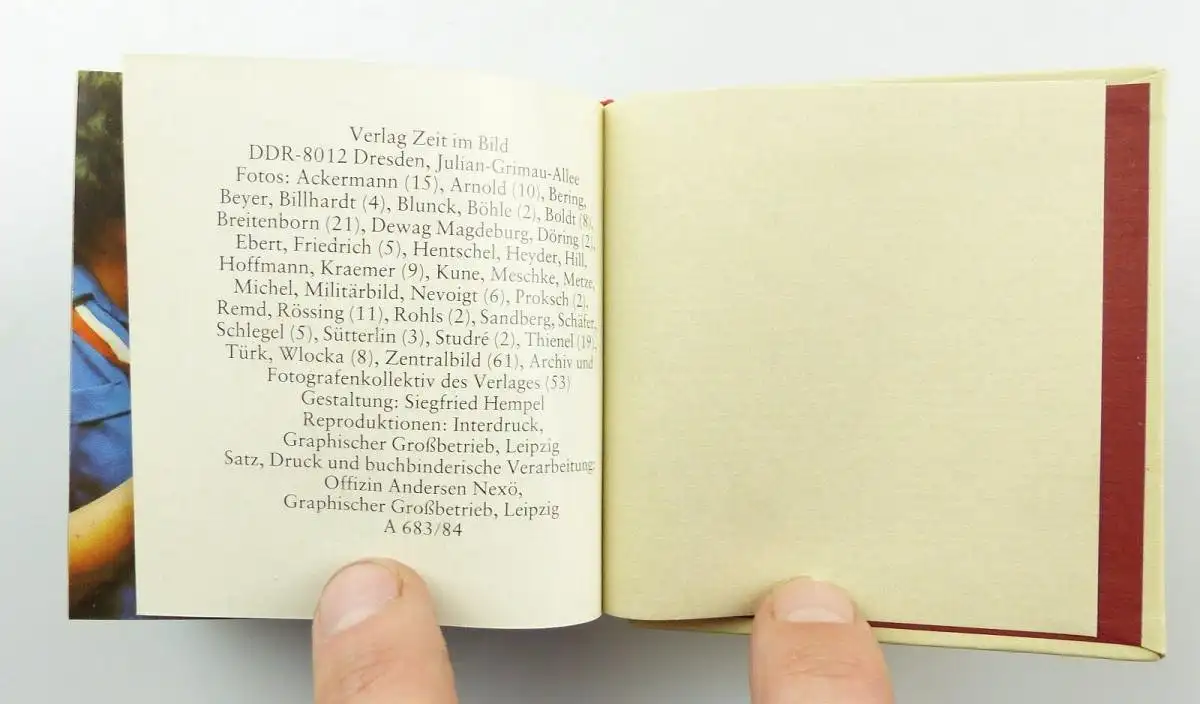 Verlag Zeit im Bild
DDR-8012 Dresden, Julian-Grimau-Allee
Fotos: Ackermann (15), Arnold (10), Bering,
Beyer, Billhardt (4), Blunck, Böhle (2), Boldt (8),
Breitenborn (21), Dewag Magdeburg, Döring (2),
Ebert, Friedrich (5), Hentschel, Heyder, Hill,
Hoffmann, Kraemer (9), Kune, Meschke, Metze,
Michel, Militärbild, Nevoigt (6), Proksch (2),
Remd, Rössing (11), Rohls (2), Sandberg, Schäfer,
Schlegel (5), Sütterlin (3), Studré (2), Thienel (19),
Türk, Wlocka (8), Zentralbild (61), Archiv und
Fotografenkollektiv des Verlages (53)
Gestaltung: Siegfried Hempel
Reproduktionen: Interdruck,
Graphischer Großbetrieb, Leipzig
Satz, Druck und buchbinderische Verarbeitung:
Offizin Andersen Nexö,
Graphischer Großbetrieb, Leipzig
A 683/84